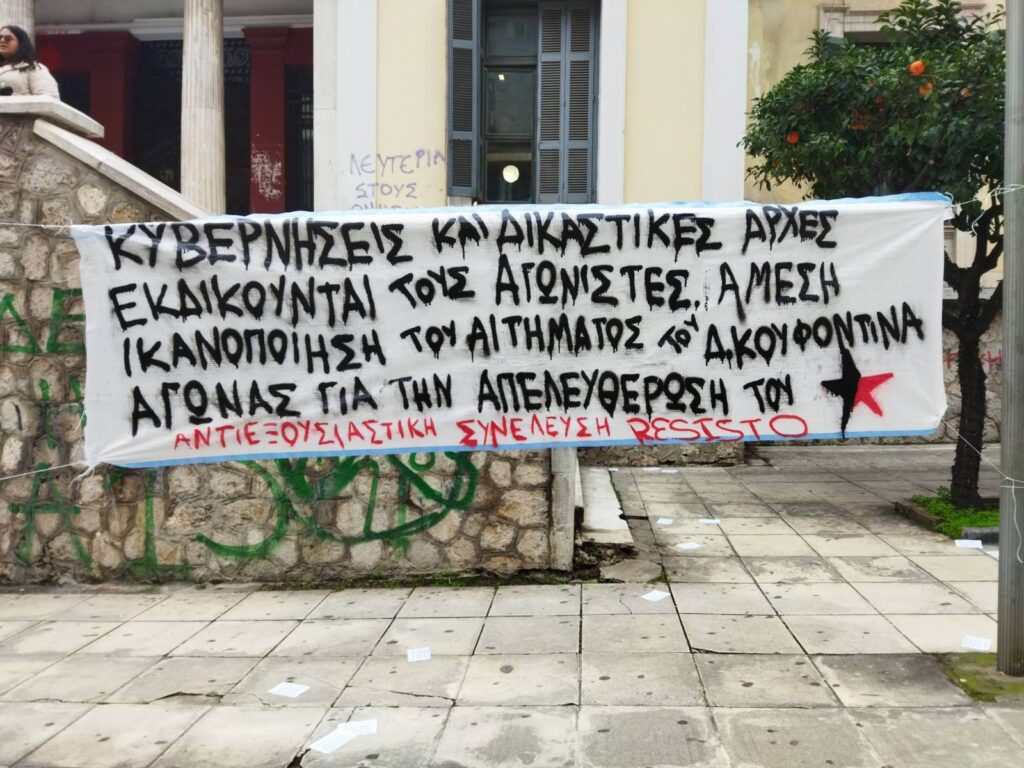 ΛΕΥΤΕΡΙΑ
ΣΤΟΥΣ
ΚΥΒΕΡΝΗΣΕΙΣ ΚΑΙ ΔΙΚΑΣΤΙΚΕΣ ΑΡΧΕΣ
ΕΚΔΙΚΟΥΝΤΑΙ ΤΟΥΣ ΑΓΩΝΙΣΤΕΣ. ΑΜΕΣΗ
ΙΚΑΝΟΠΟΙΗΣΗ ΤΟΥ ΑΙΤΗΜΑΤΟΣ ΤΟΥ Δ.ΚΟΥΦΟΝΤΙΝΑ
ΑΓΩΝΑΣ ΓΙΑ ΤΗΝ ΑΠΕΛΕΥΘΕΡΩΣΗ ΤΟΥ
ΑΝΤΙΕΞΟΥΣΙΑΣΤΙΚΗ ΣΥΝΕΛΕΥΣΗ RESISTO